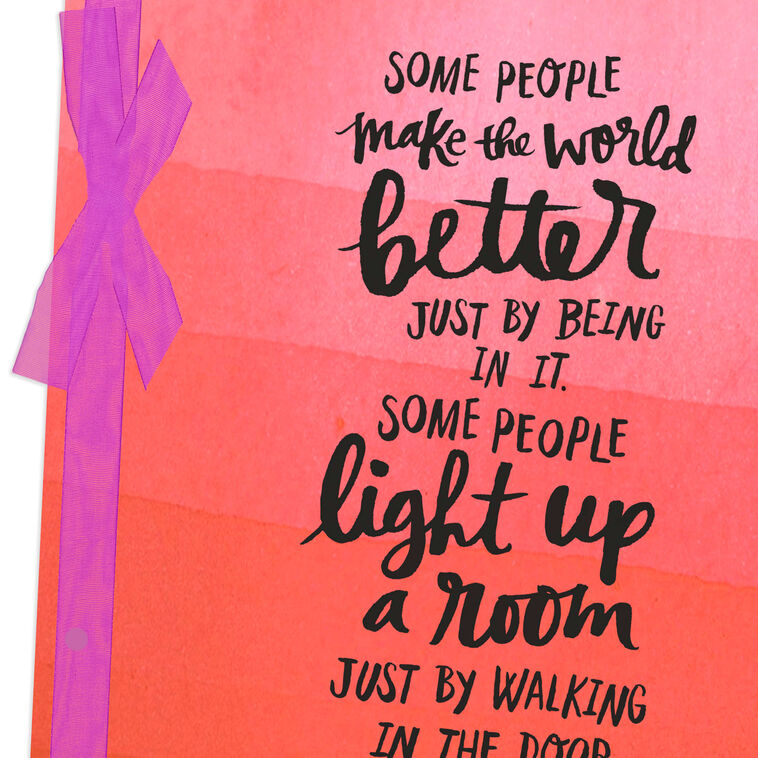 SOME PEOPLE
make the world
better
JUST BY BEING
IN IT.
SOME PEOPLE
light up
a room
JUST BY WALKING
IN THE DOOR